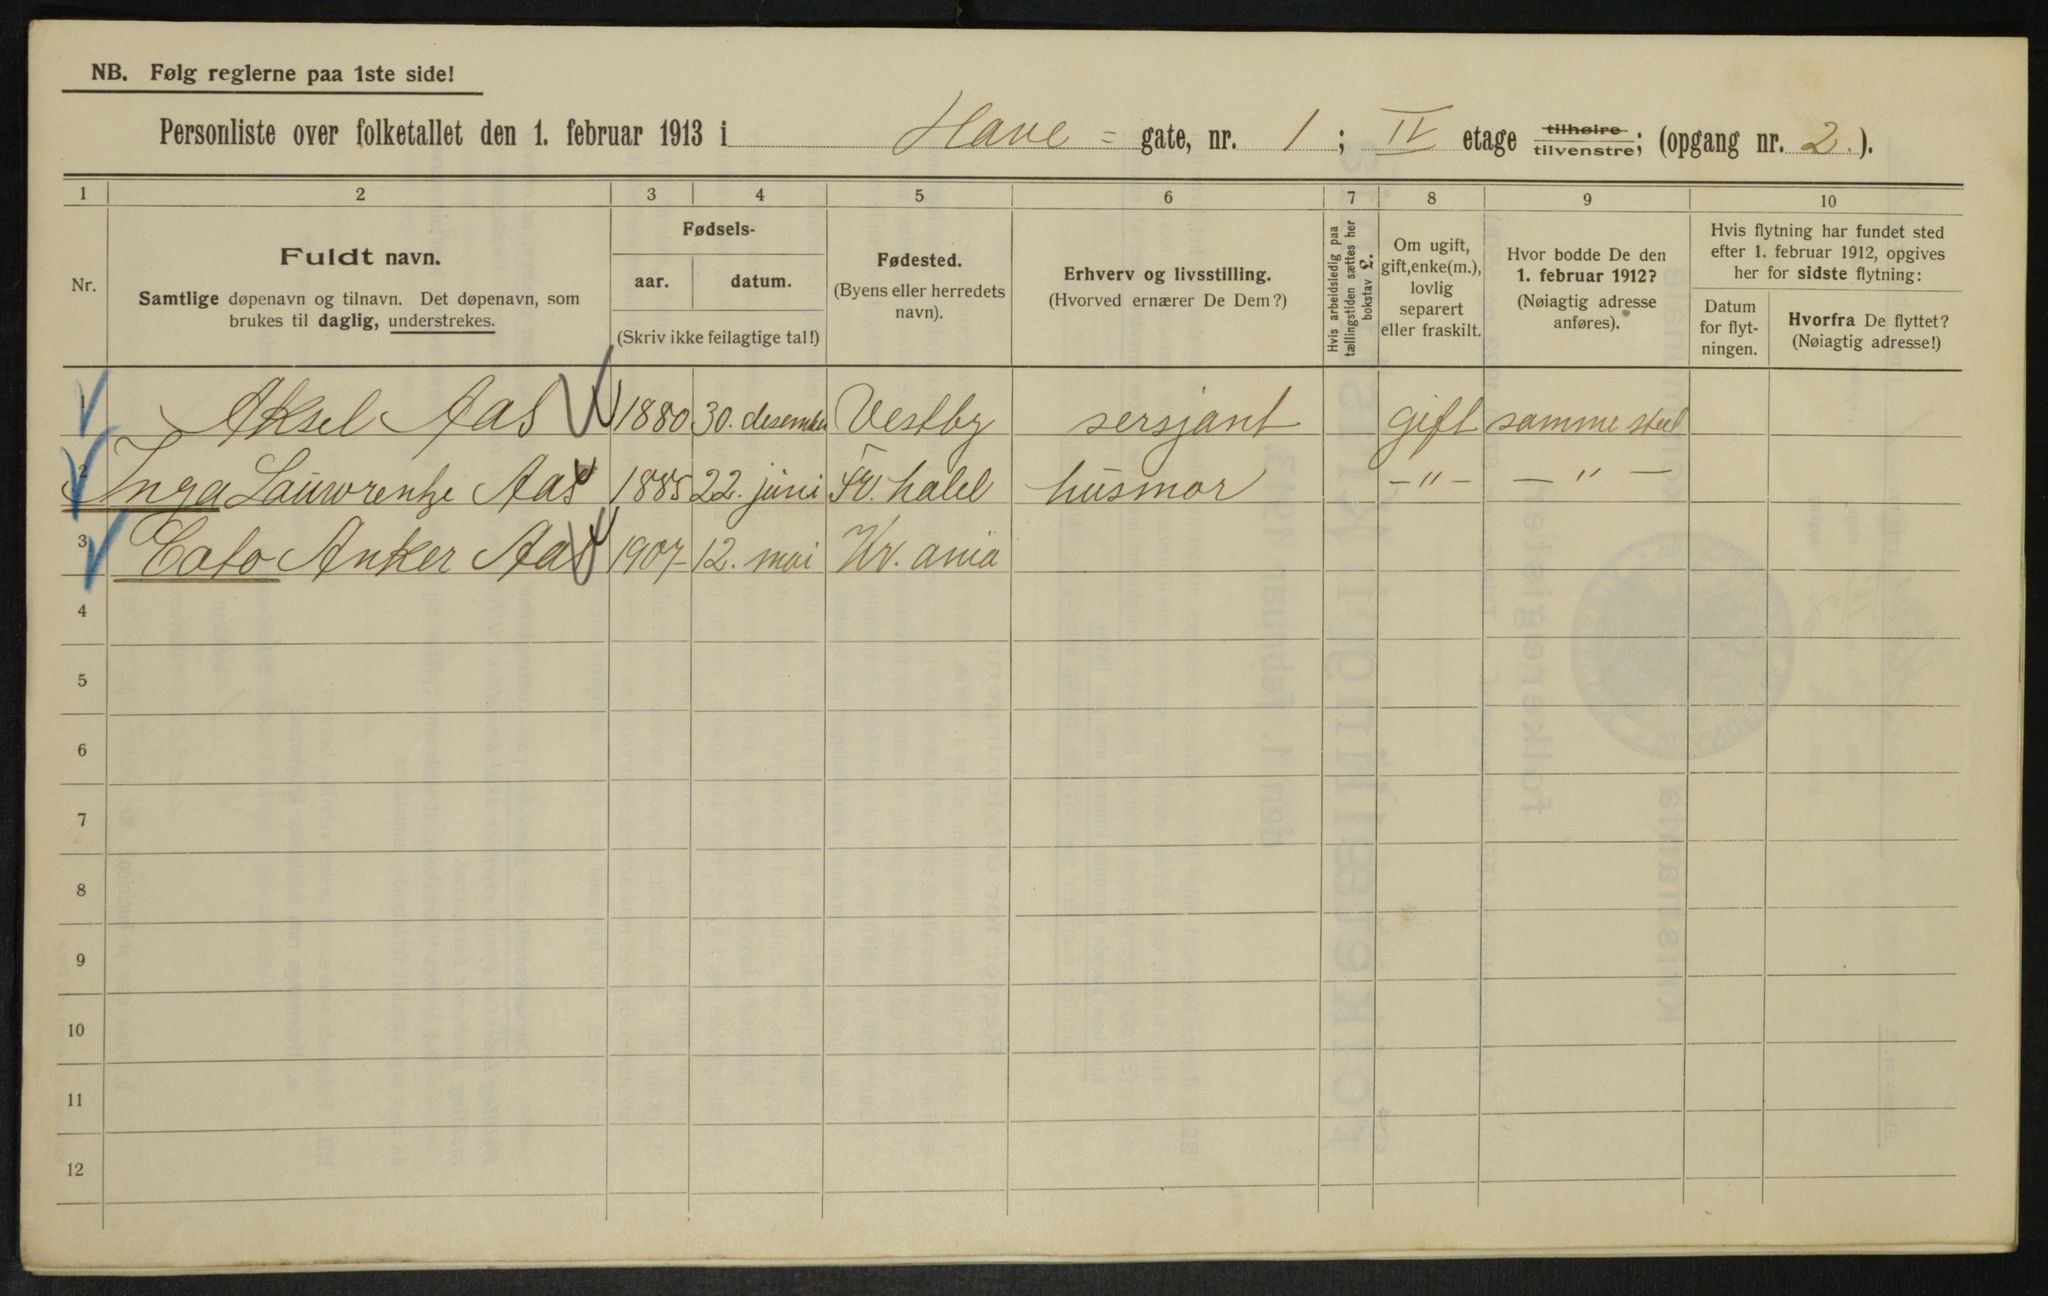 NB. Følg reglerne paa 1ste side!
Personliste over folketallet den 1. februar 1913 i Have = gate, nr. 1 ; IV etage tilhøire tilvenstre; (opgang nr. 2.).
1 2 3 4 5 6 7 8 9 10
Nr.
Fuldt navn.
Samtlige døpenavn og tilnavn. Det døpenavn, som
brukes til daglig, understrekes.
Fødsels-
aar. datum.
(Skriv ikke feilagtige tal!)
Fødested.
(Byens eller herredets
navn).
Erhverv og livsstilling.
(Hvorved ernærer De Dem?)
Hvis arbeidsledig paa
tællingstiden sættes her
bokstav L.
Om ugift,
gift, enke(m.),
lovlig
separert
eller fraskilt.
Hvor bodde De den
1. februar 1912?
(Nøiagtig adresse
anføres).
Hvis flytning har fundet sted
efter 1. februar 1912, opgives
her for sidste flytning:
Datum
for flyt-
ningen.
Hvorfra De flyttet?
(Nøiagtig adresse!)
1 Aksel Aas 1880 30. desember Vestby sersjant gift samme sted
2 Inga Lauwrentze Aas 1885 22. juni Fr. hald husmor -"- -"-
3 Cato Anker Aas 1907 12. mai Kr. ania
4
5
6
7
8
9
10
11
12